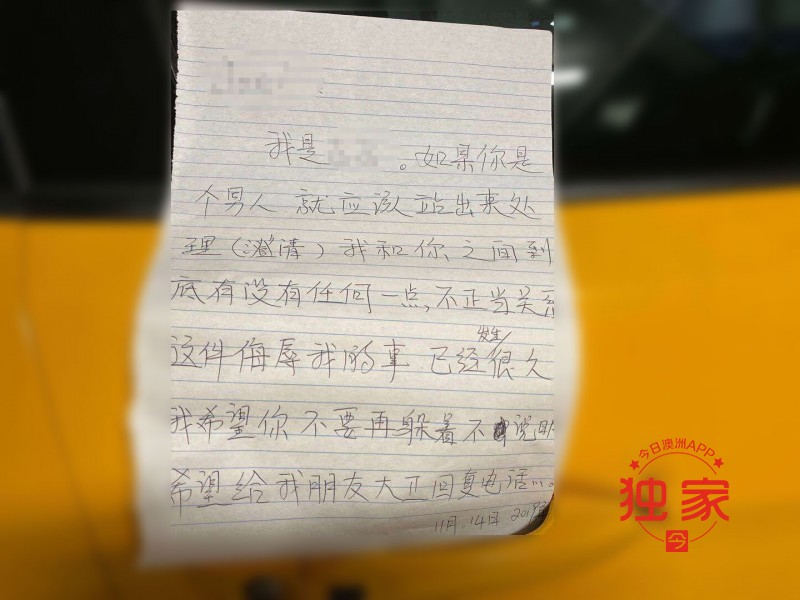 我是 。如果你是
个男人 就应该站出来处
理（澄清）我和你之间到
底有没有任何一点,不正当关系
发生
这件侮辱我的事.已经很久
我希望你不要再躲着不说明
希望给我朋友大正回复电话...。
11月.14日 2019
今日澳洲APP
独家
今